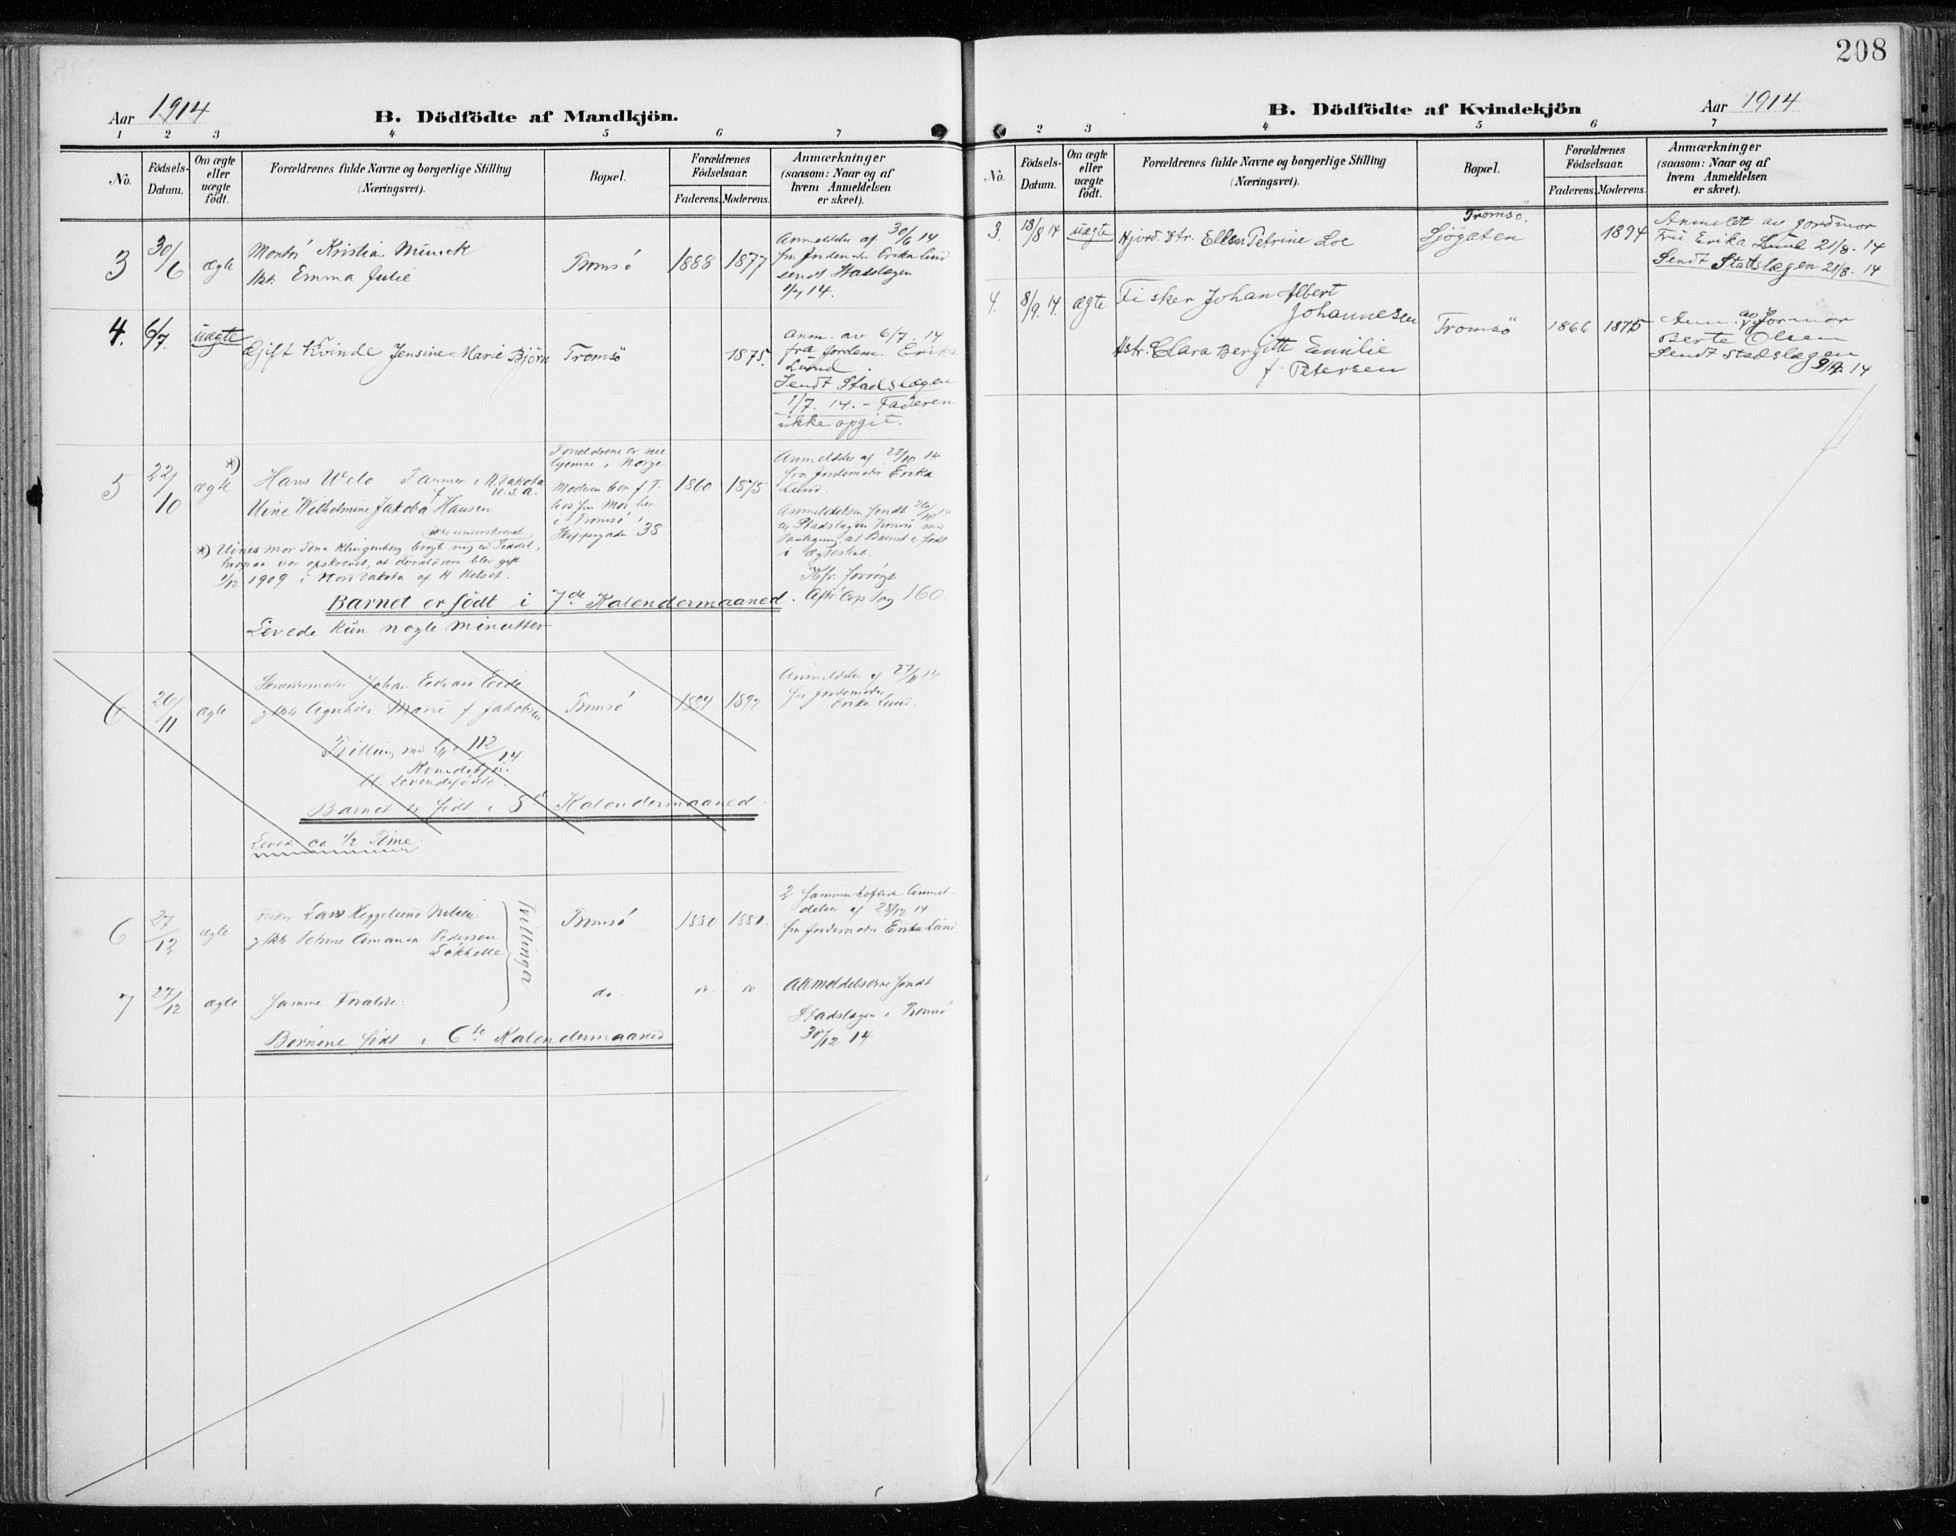 208
Aar 1914
B. Dödfödte af Mandkjön.
1 2 3 4 5 6 7
No.
Födsels-Datum.
Om ægte eller uægte födt.
Forældrenes fulde Navne og borgerlige Stilling
(Næringsvei).
Bopæl.
Forældrenes Födselsaar.
Faderens. Moderens.
Anmærkninger
(saasom: Naar og af
hvem Anmeldelsen
er skeet).
3 30/6 ægte
Kristian Munck
Emma Julie
Tromsö 1888 1877
Anmeldelse af 30/6 14
fra Jordemoder Erika Lund
sendt Stadslægen
1/7 14.
4. 6/7. uægte
Gift Kvinde Jensine Marie Björn Tromsö 1875.
Anm. av 6/7. 14
fra Jordem. Erika
Lund.
Sendt Stadslægen
1/7. 14. - Faderen
ikke opgit.
5 22/10 *) ægte
Hans Welo Farmer i N. Dakota
U.S.A.
Wilhelmine Jakoba f Hansen
Forældrene er
hjemme i Norge
Moderen bor f. T.
hos sin Mor her
i Tromsö
Skippergaden 38
1860 1875
Anmeldelse af 22/10 14
fra Jordemoder Erika
Lund.
Anmeldelsen sendt
Stadslægen Tromsö
at Barnet er födt
i Ægteskab.
160.
*) mor Klingenberg
var opskrevet, at forældrene blev gift
1/12 1909 i Nord Dakota af H. Helset.
Barnet er født i 7de Kalendermaaned.
Levede kun nogle minutter
6 26/11 ægte
Johan Edvard Eide
Agnhild Marie f Jakobsen
Tromsö 1884 1892
Anmeldelse af 27/11 14
fra Jordemoder
Erika Lund.
Tvilling med No 112/14
Kvindekjön.
bl. Levendefödte.
Barnet er födt i 5te Kalendermaaned.
Leved ca 1/2 Time.
6 27/12 ægte
Fisker Lars Heggelund Nilsen
Petrine Amanda Pedersen
Løkkelle
Tvillinger
Tromsö 1880 1880.
2 sammenheftede Anmel-
delser af 28/12 14
fra Jordemoder Erika Lund
7 27/12 ægte
Samme Forældre.
do. do do
Anmeldelserne sendt
Stadslægen i Tromsö
30/12 14
Børnene født i 6te Kalendermaaned
B. Dödfödte af Kvindekjön
Aar 1914
2 3 4 5 6 7
No.
Födsels-Datum.
Om ægte eller uægte födt.
Forældrenes fulde Navne og borgerlige Stilling
(Næringsvei).
Bopæl.
Forældrenes Födselsaar.
Faderens. Moderens.
Anmærkninger
(saasom: Naar og af
hvem Anmeldelsen
er skeet).
3. 18/8 14 uægte
Ellen Petrine Loe
Tromsö.
Sjögaten
1894
Anmeldt av Jordmor
Fru Erika Lund 21/8. 14
Sendt Stadslægen 21/8. 14
4. 8/9. 14. ægte
Fisker Johan Albert
Johannesen
Hstr. Clara Bergitte Emilie
f. Petersen
Tromsö 1866 1875
Anm. av Jormor
Berte Olsen
Sendt Stadslægen
9/9. 14